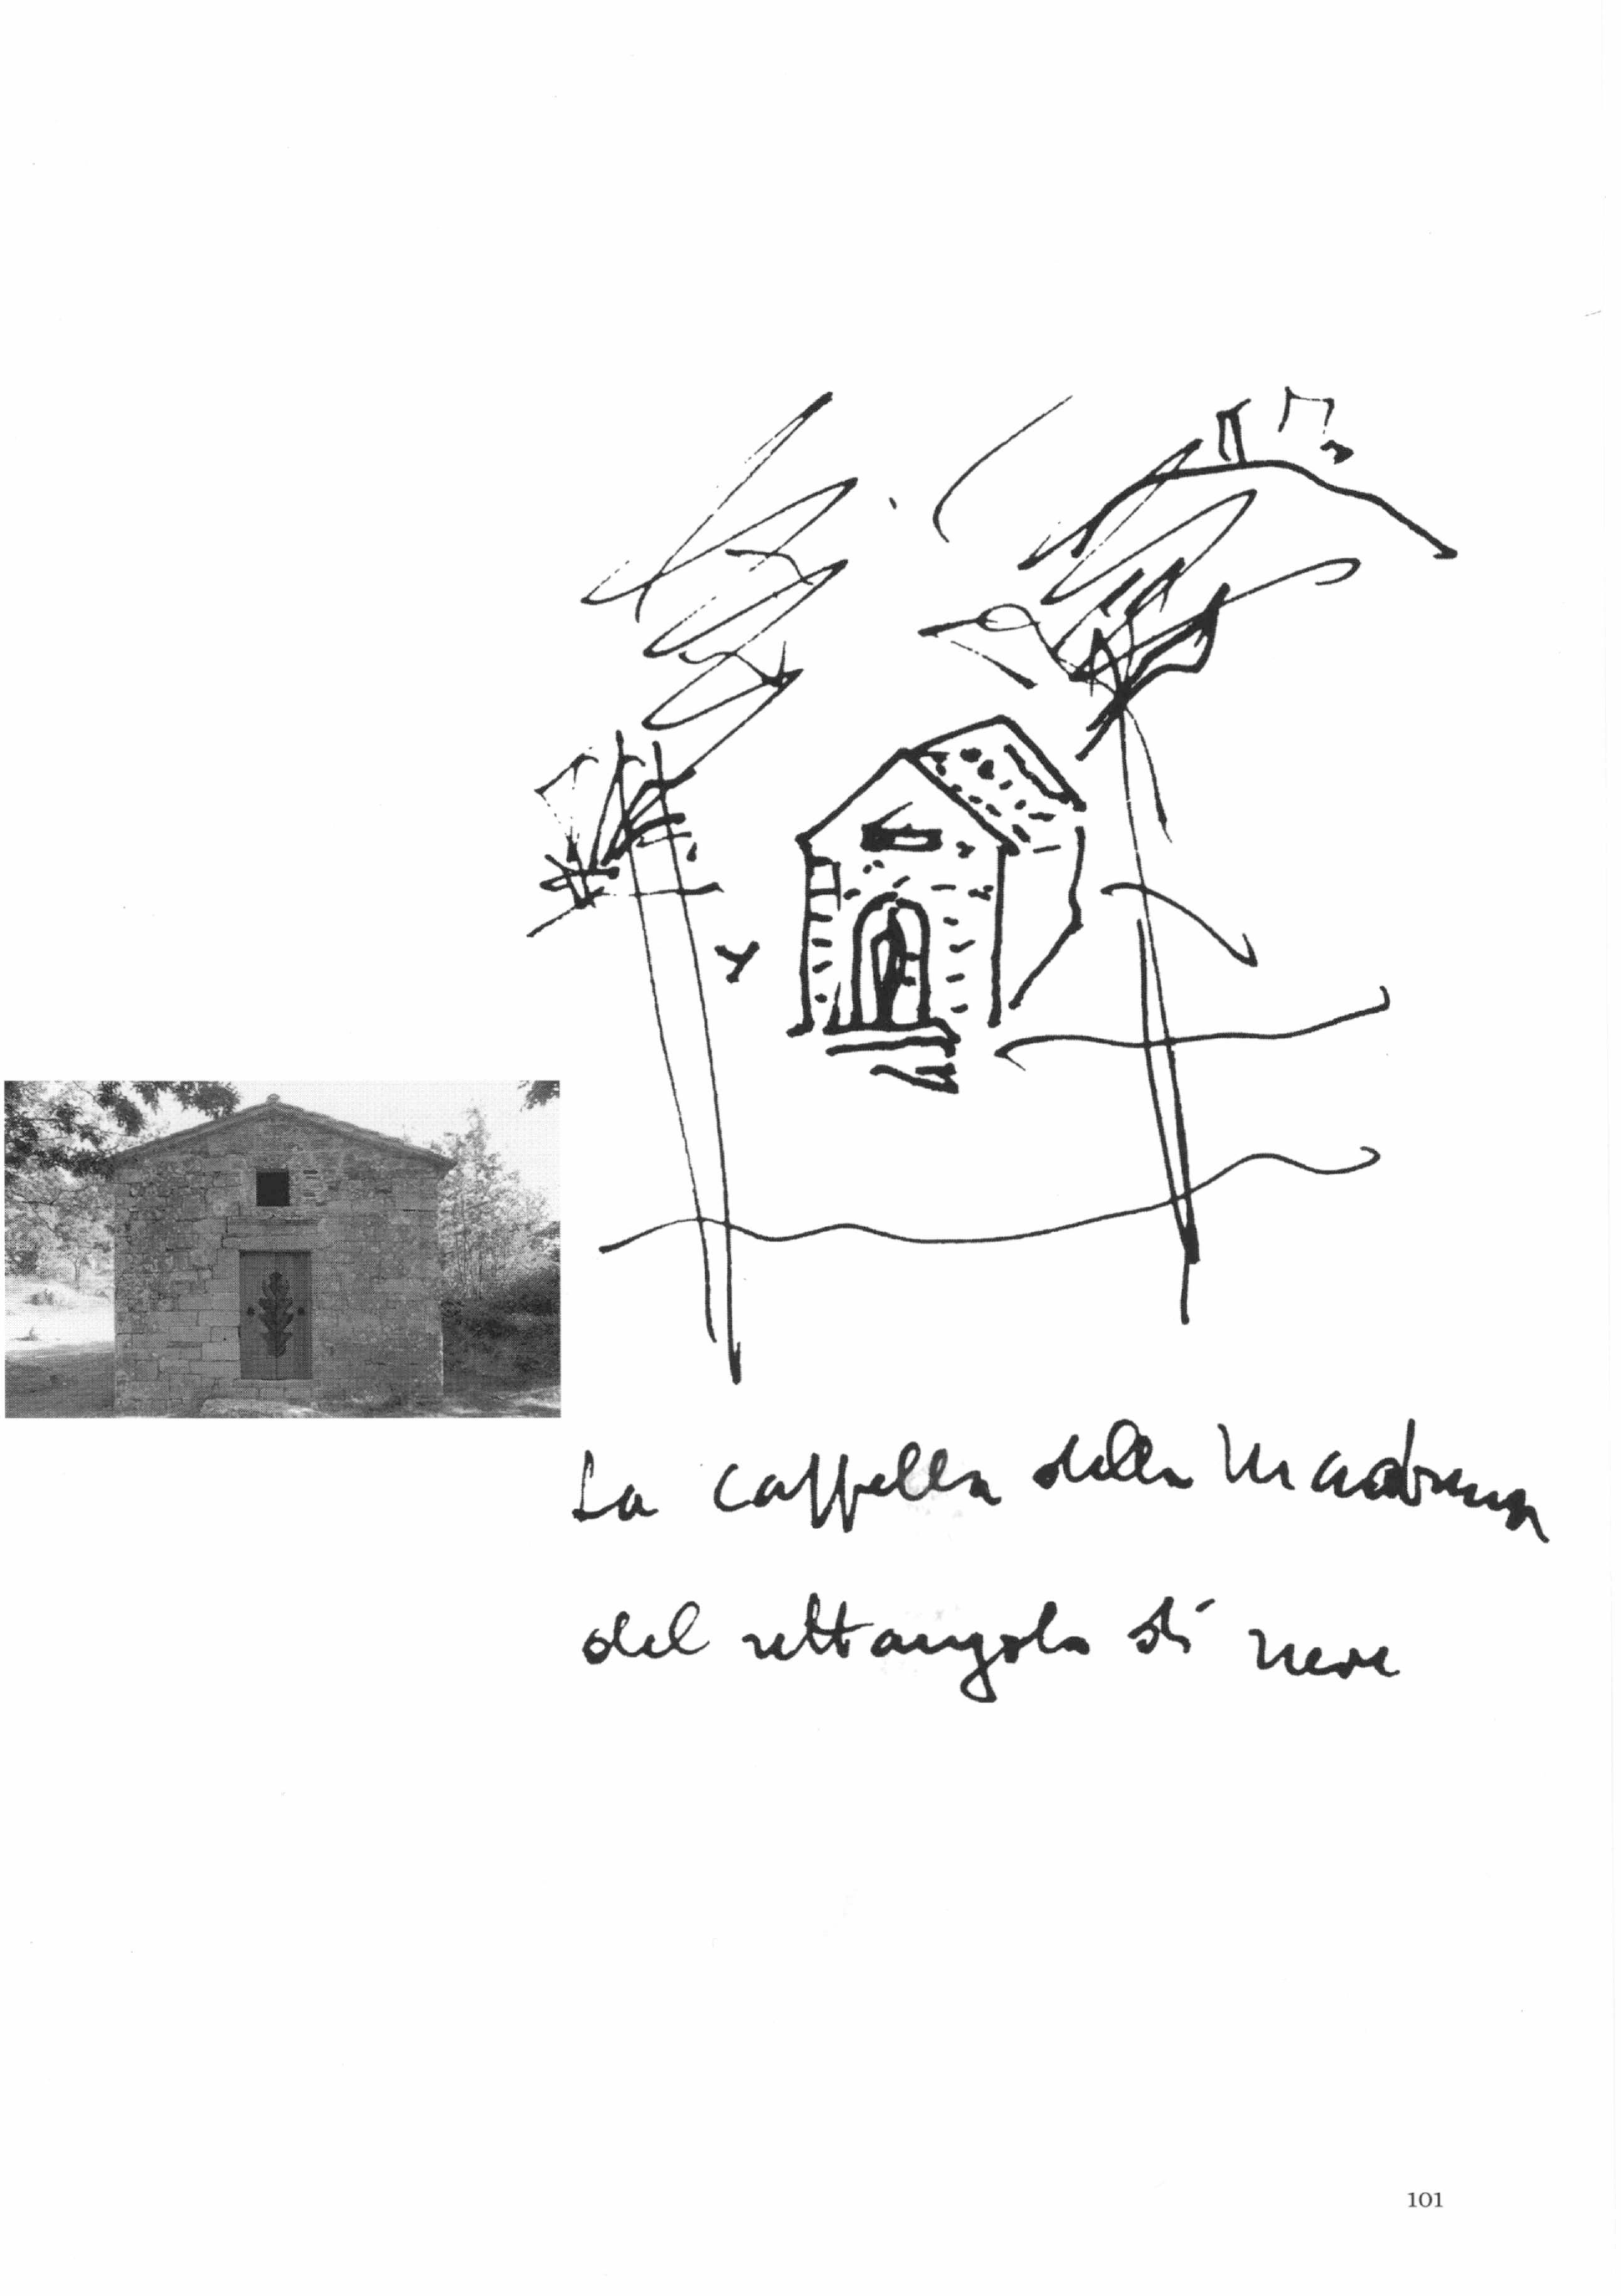 La cappella della Madonna
del rettangolo di neve
101